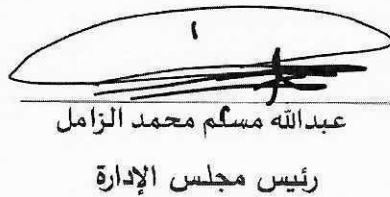 عبدالله مسلم محمد الزامل
رئيس مجلس الإدارة